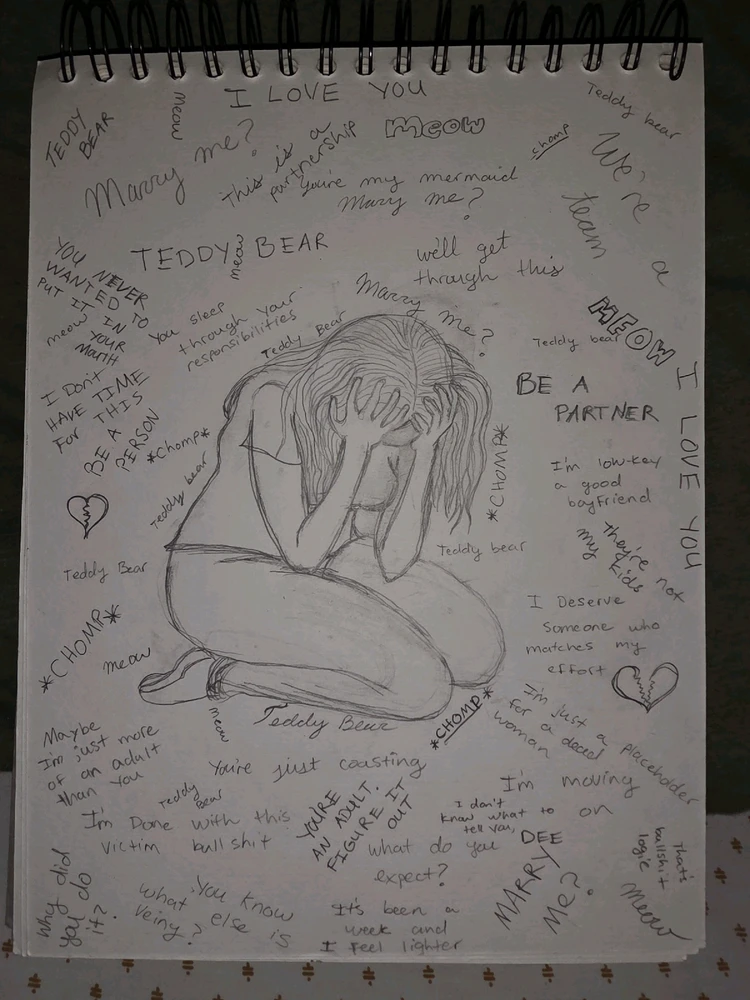 I LOVE YOU
TEDDY
BEAR
meow
Marry me?
This is a
partnership
meow
chomp
Teddy bear
You're my mermaid
Marry me?
We're
a
team
TEDDY BEAR
meow
we'll get
through this
YOU NEVER
WANTED TO
PUT IT IN
YOUR
meow
You sleep
through your
responsibilities
Teddy Bear
Marry me?
MEOW
Teddy bear
I LOVE YOU
I Don't
HAVE TIME
For THIS
BE A
PERSON
*Chomp*
BE A
PARTNER
Teddy bear
*CHOMP*
I'm low-key
a good
boyfriend
they're not
my kids
Teddy Bear
Teddy bear
I Deserve
someone who
matches my
effort
*CHOMP*
meow
meow
Teddy Bear
*CHOMP*
I'm just a placeholder
for a dead
woman
Maybe
I'm just more
of an adult
than you
You're just coasting
I'm moving
on
Teddy
Bear
I'm Done with this
victim bullshit
YOU'RE
AN ADULT.
FIGURE IT
OUT
I don't
know what to
tell you,
DEE
what do you
expect?
MARRY
Me?
That's
bullshit
logic
meow
Why did
you do
it?
You know
what else is
veiny?
It's been a
week and
I feel lighter